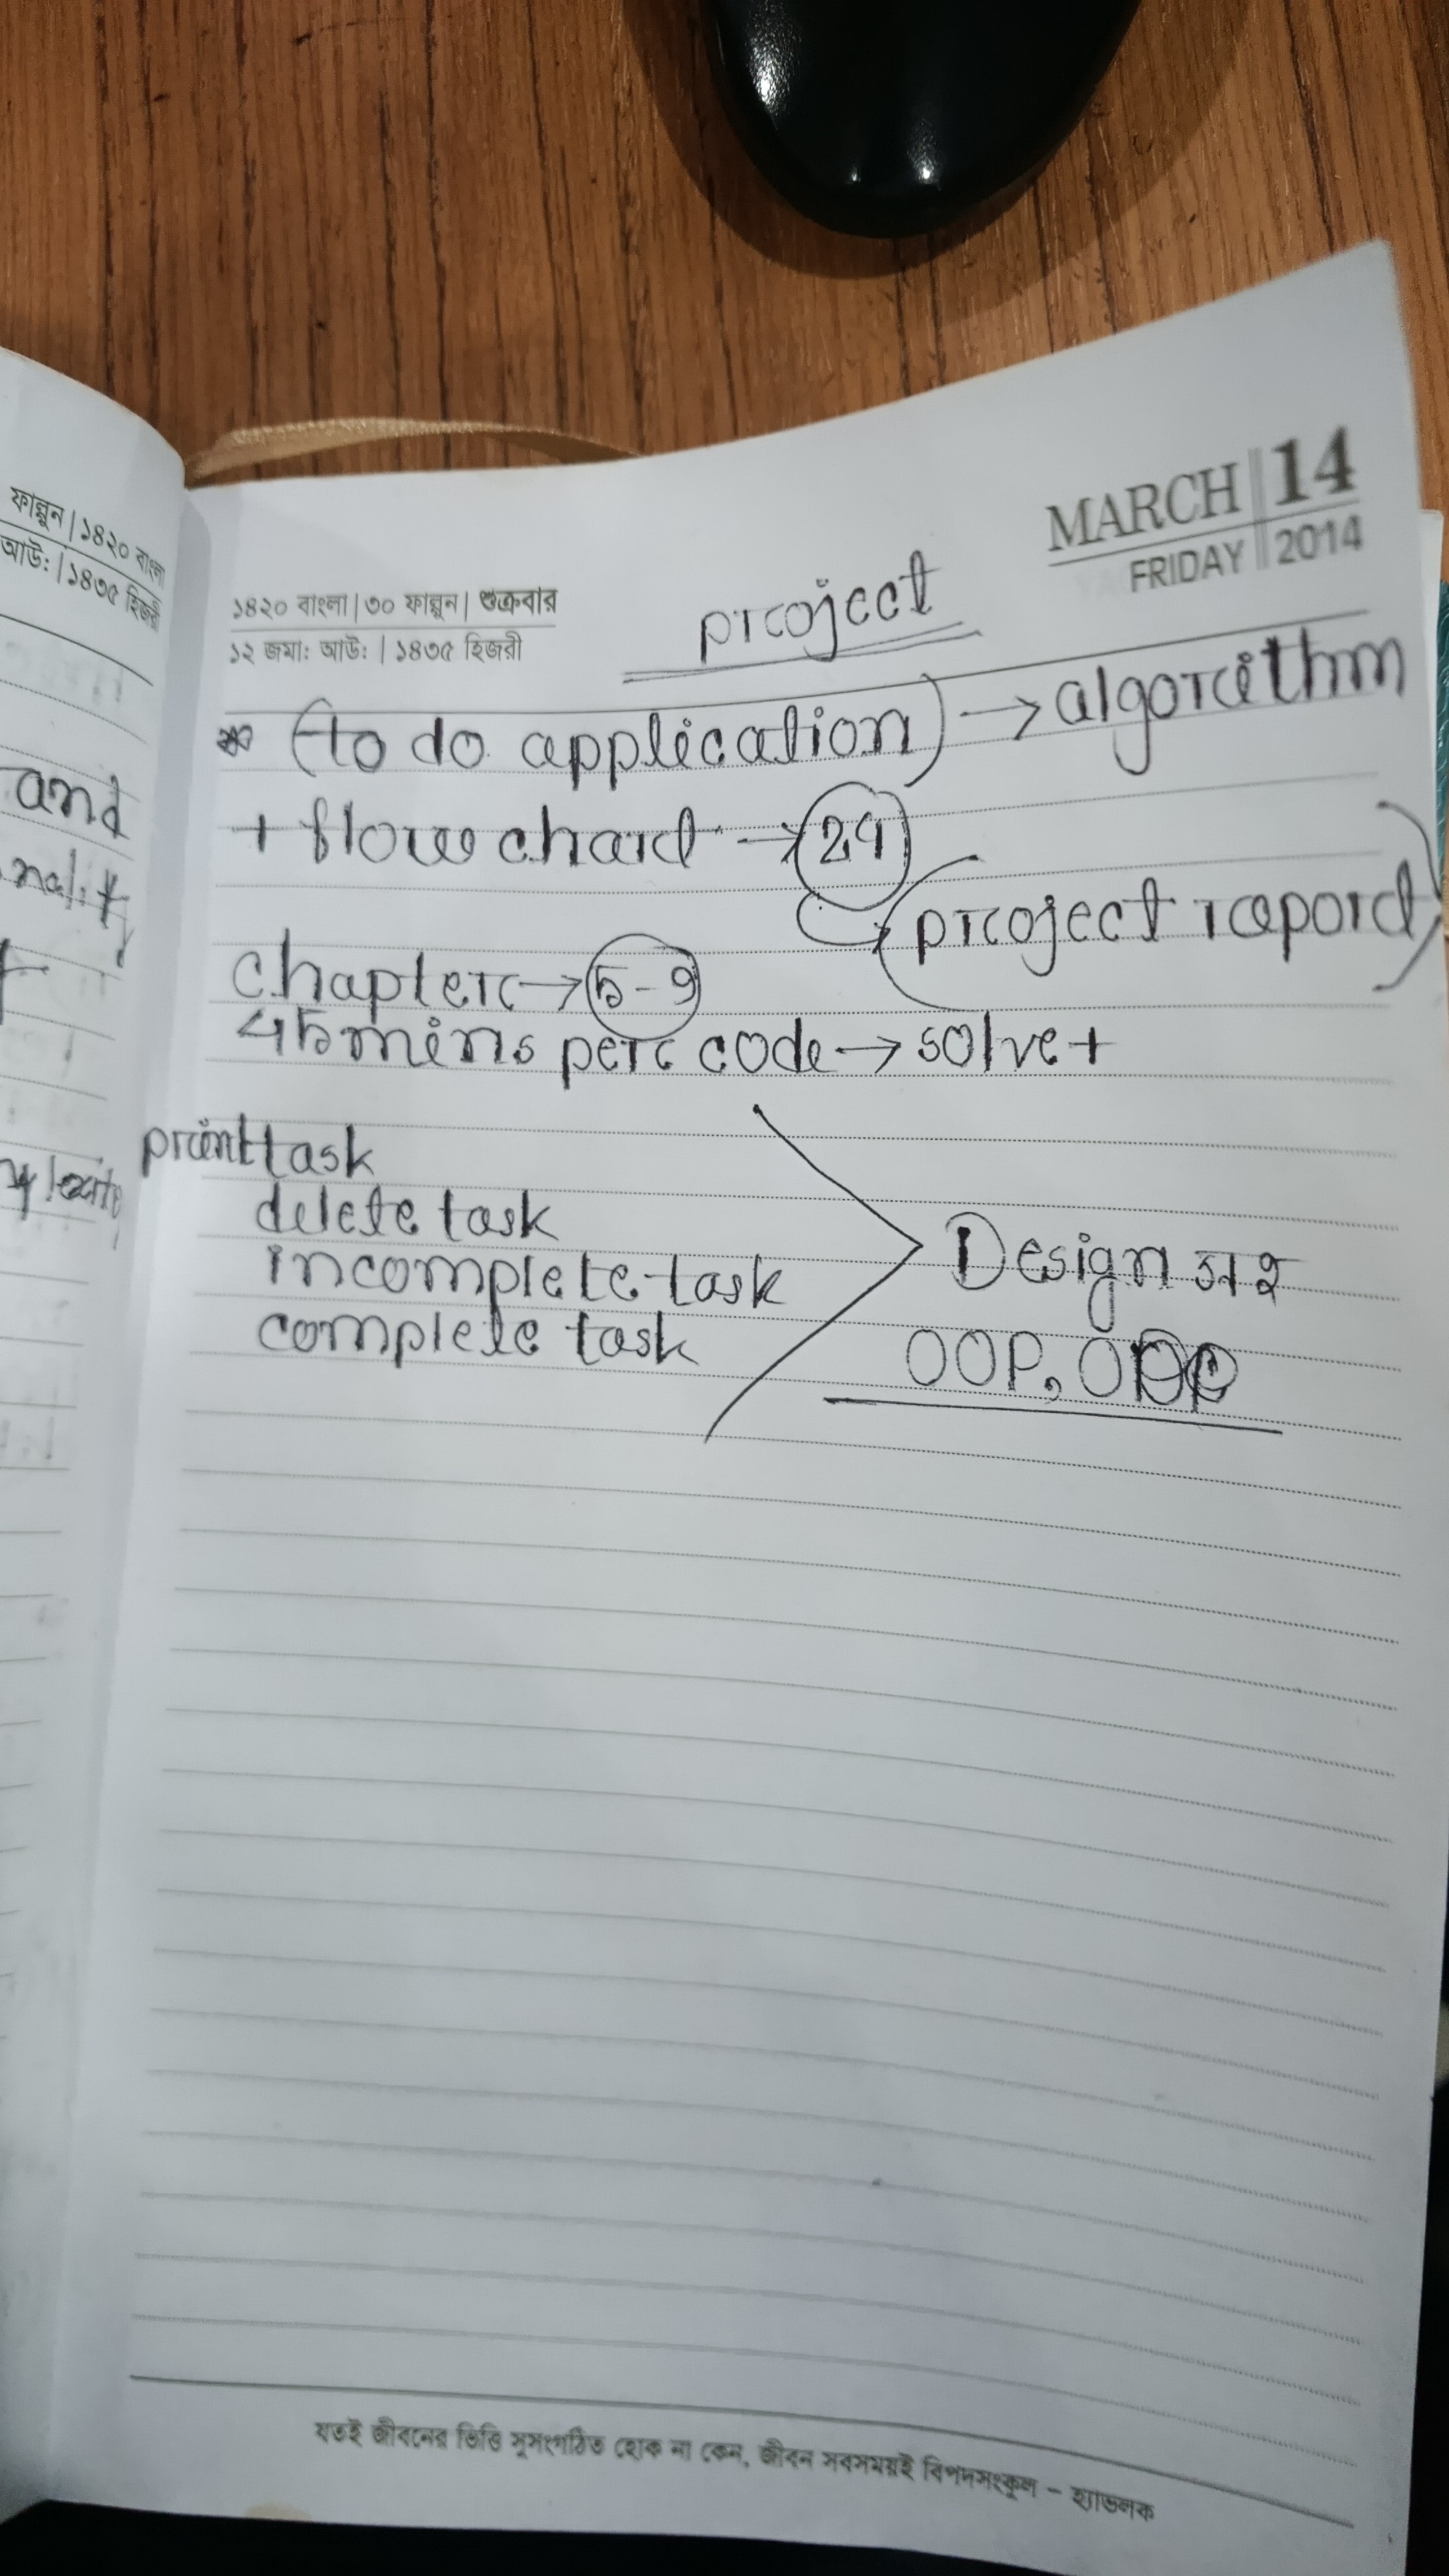 ফাল্গুন | ১৪২০ বাংলা
আউ: | ১৪৩৫ হিজরী
and
nality
MARCH 14
FRIDAY 2014
১৪২০ বাংলা | ৩০ ফাল্গুন | শুক্রবার
১২ জমা: আউ: | ১৪৩৫ হিজরী
project
(to do application) → algorithm
+ flow chart → 24
(project report)
chapter → 5-9
45 mins per code → solve +
print task
delete task
incomplete task
complete task
Design
OOP,
যতই জীবনের ভিত্তি সুসংগঠিত হোক না কেন, জীবন সবসময়ই বিপদসংকুল – হ্যাভলক